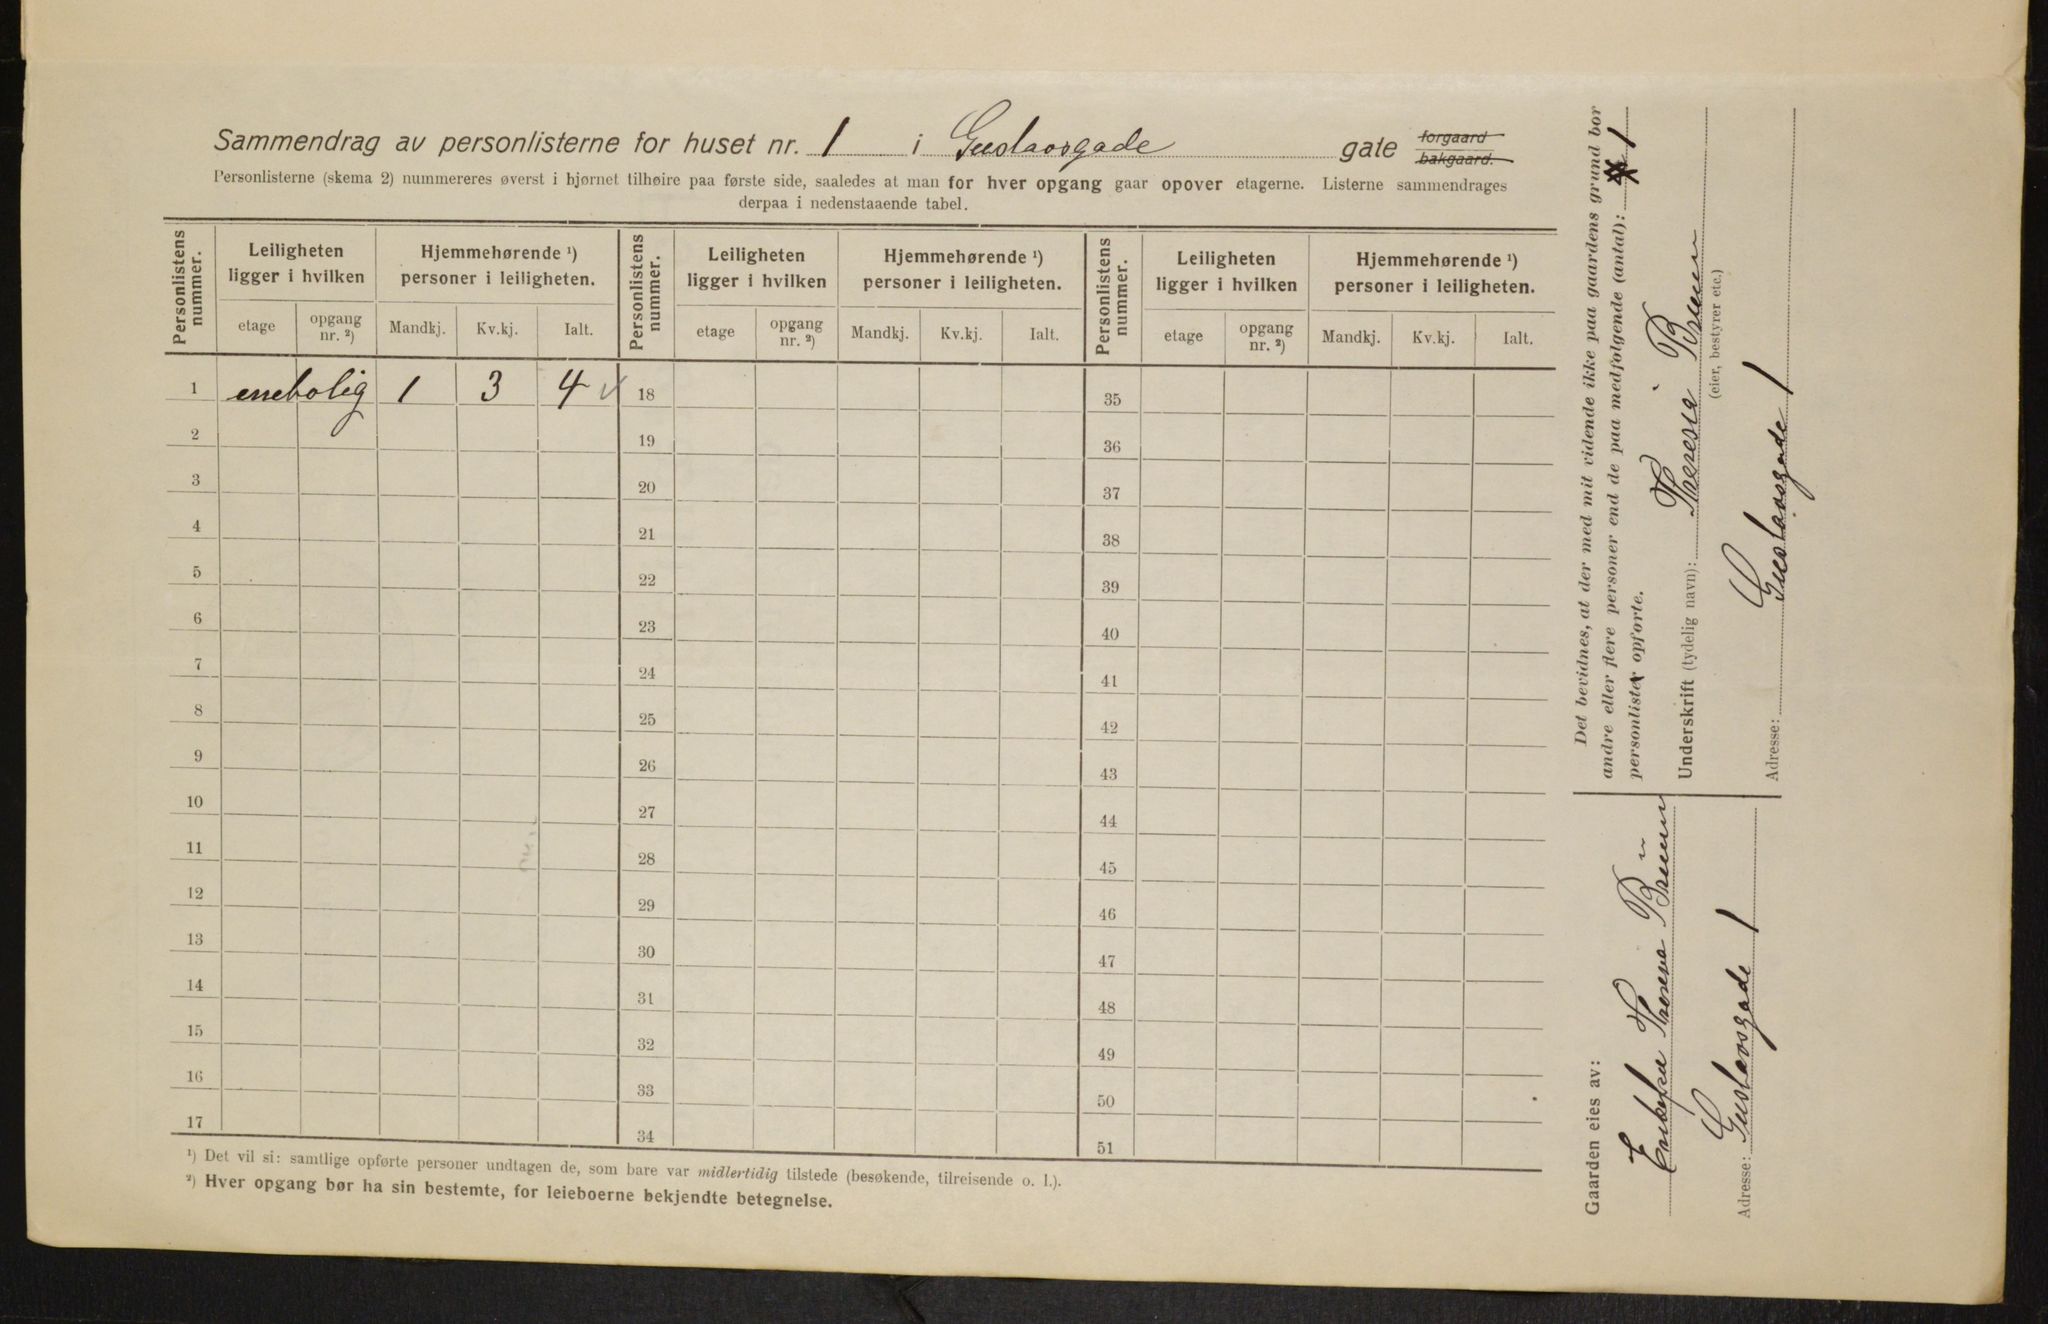 Sammendrag av personlisterne for huset nr. 1 i Gustavsgade gate forgaard
bakgaard.
Personlisterne (skema 2) nummereres øverst i hjørnet tilhøire paa første side, saaledes at man for hver opgang gaar opover etagerne. Listerne sammendrages
derpaa i nedenstaaende tabel.
Personlistens nummer. Leiligheten ligger i hvilken Hjemmehørende ¹) personer i leiligheten. Personlistens nummer. Leiligheten ligger i hvilken Hjemmehørende ¹) personer i leiligheten. Personlistens nummer. Leiligheten ligger i hvilken Hjemmehørende ¹) personer i leiligheten.
etage opgang nr. ²) Mandkj. Kv.kj. Ialt. etage opgang nr. ²) Mandkj. Kv.kj. Ialt. etage opgang nr. ²) Mandkj. Kv.kj. Ialt.
1 enebolig 1 3 4 18 35
2 19 36
3 20 37
4 21 38
5 22 39
6 23 40
7 24 41
8 25 42
9 26 43
10 27 44
11 28 45
12 29 46
13 30 47
14 31 48
15 32 49
16 33 50
17 34 51
¹) Det vil si: samtlige opførte personer undtagen de, som bare var midlertidig tilstede (besøkende, tilreisende o. l.).
²) Hver opgang bør ha sin bestemte, for leieboerne bekjendte betegnelse.
Det bevidnes, at der med mit vidende ikke paa gaardens grund bor
andre eller flere personer end de paa medfølgende (antal): 1
personlister opførte.
Underskrift (tydelig navn): Theresia Bruun
(eier, bestyrer etc.)
Adresse: Gustavsgade 1
Gaarden eies av:
Enkefru Bruun
Adresse: Gustavsgade 1